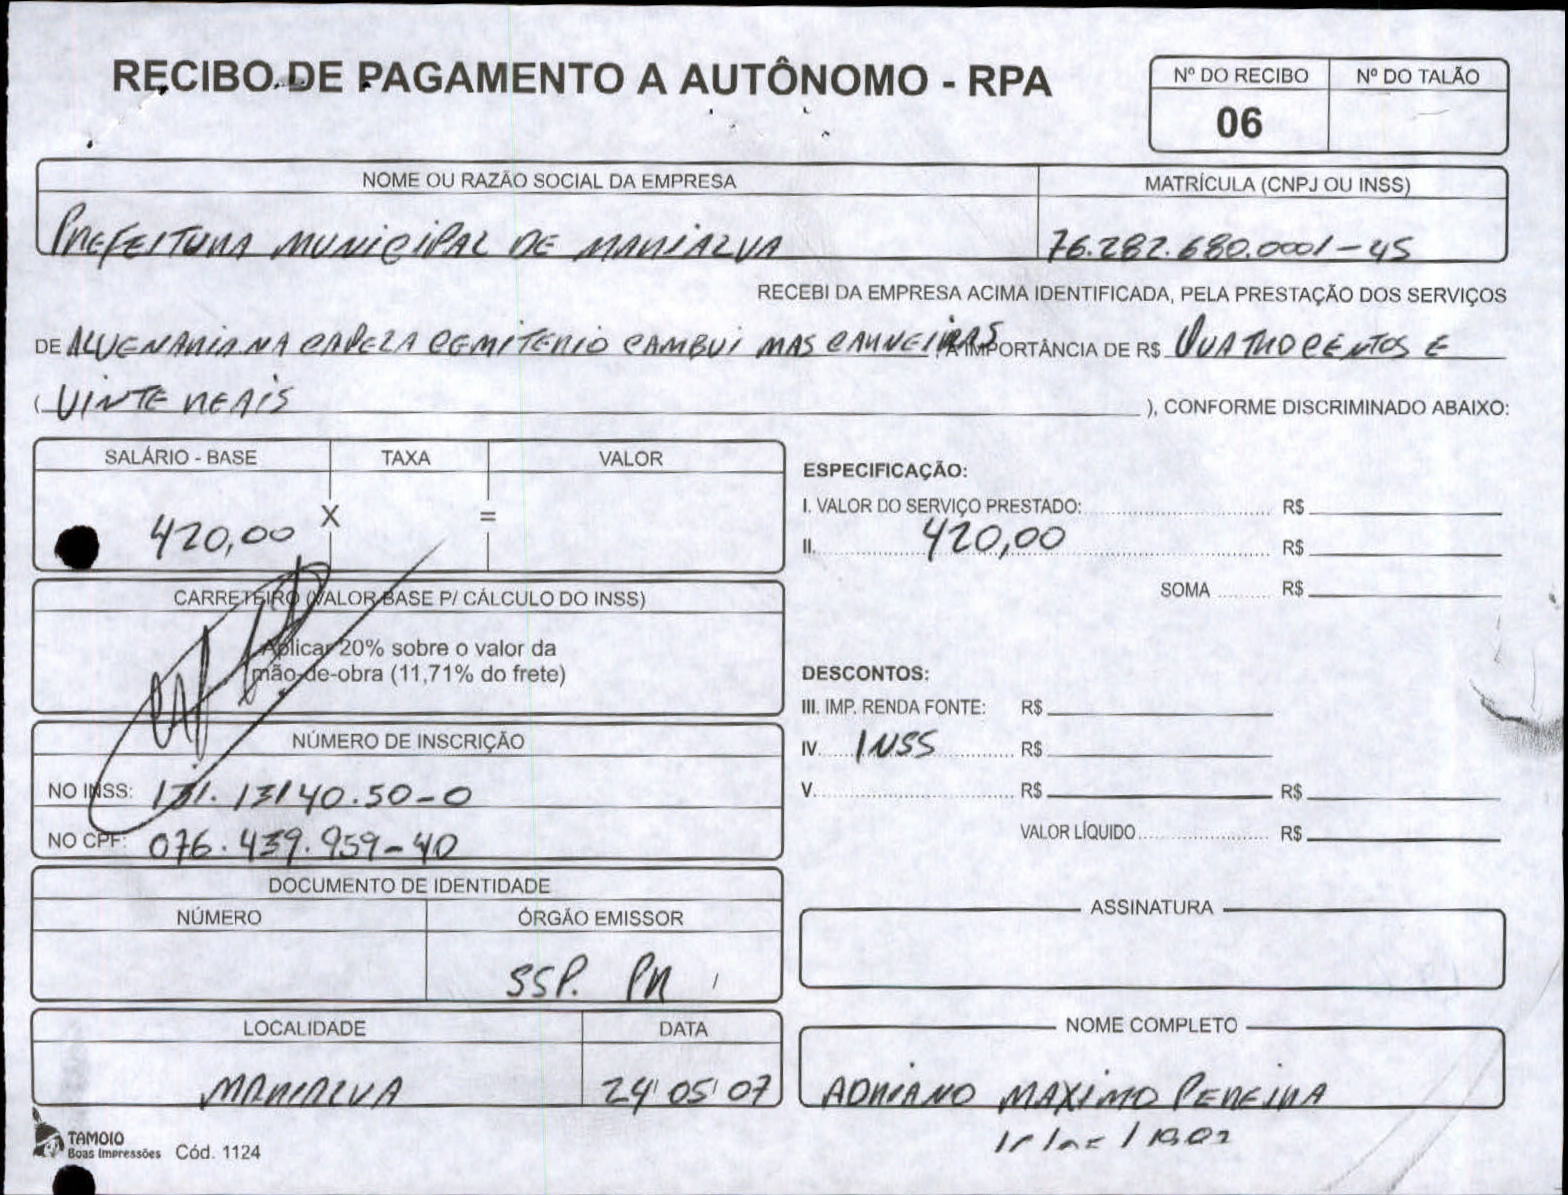 RECIBO DE PAGAMENTO A AUTÔNOMO - RPA
Nº DO RECIBO Nº DO TALÃO
06
NOME OU RAZÃO SOCIAL DA EMPRESA MATRÍCULA (CNPJ OU INSS)
PREFEITURA MUNICIPAL DE MARIALVA 76.282.680.0001-45
RECEBI DA EMPRESA ACIMA IDENTIFICADA, PELA PRESTAÇÃO DOS SERVIÇOS
DE ALVENARIA NA CAPELA CEMITERIO CAMBUI MAS CARNEIRAS, A IMPORTÂNCIA DE R$ QUATROCENTOS E
( VINTE REAIS ), CONFORME DISCRIMINADO ABAIXO:
SALÁRIO - BASE TAXA VALOR
420,00 X =
CARRETEIRO (VALOR BASE P/ CÁLCULO DO INSS)
Aplicar 20% sobre o valor da
mão-de-obra (11,71% do frete)
NÚMERO DE INSCRIÇÃO
NO INSS: 131.13140.50-0
NO CPF: 076.439.959-40
DOCUMENTO DE IDENTIDADE
NÚMERO ÓRGÃO EMISSOR
SSP. PR
LOCALIDADE DATA
MARIALVA 24 05 07
ESPECIFICAÇÃO:
I. VALOR DO SERVIÇO PRESTADO: R$
II. 420,00 R$
SOMA R$
DESCONTOS:
III. IMP. RENDA FONTE: R$
IV. INSS R$
V. R$ R$
VALOR LÍQUIDO R$
ASSINATURA
NOME COMPLETO
ADRIANO MAXIMO PEREIRA
TAMOIO
Boas Impressões Cód. 1124